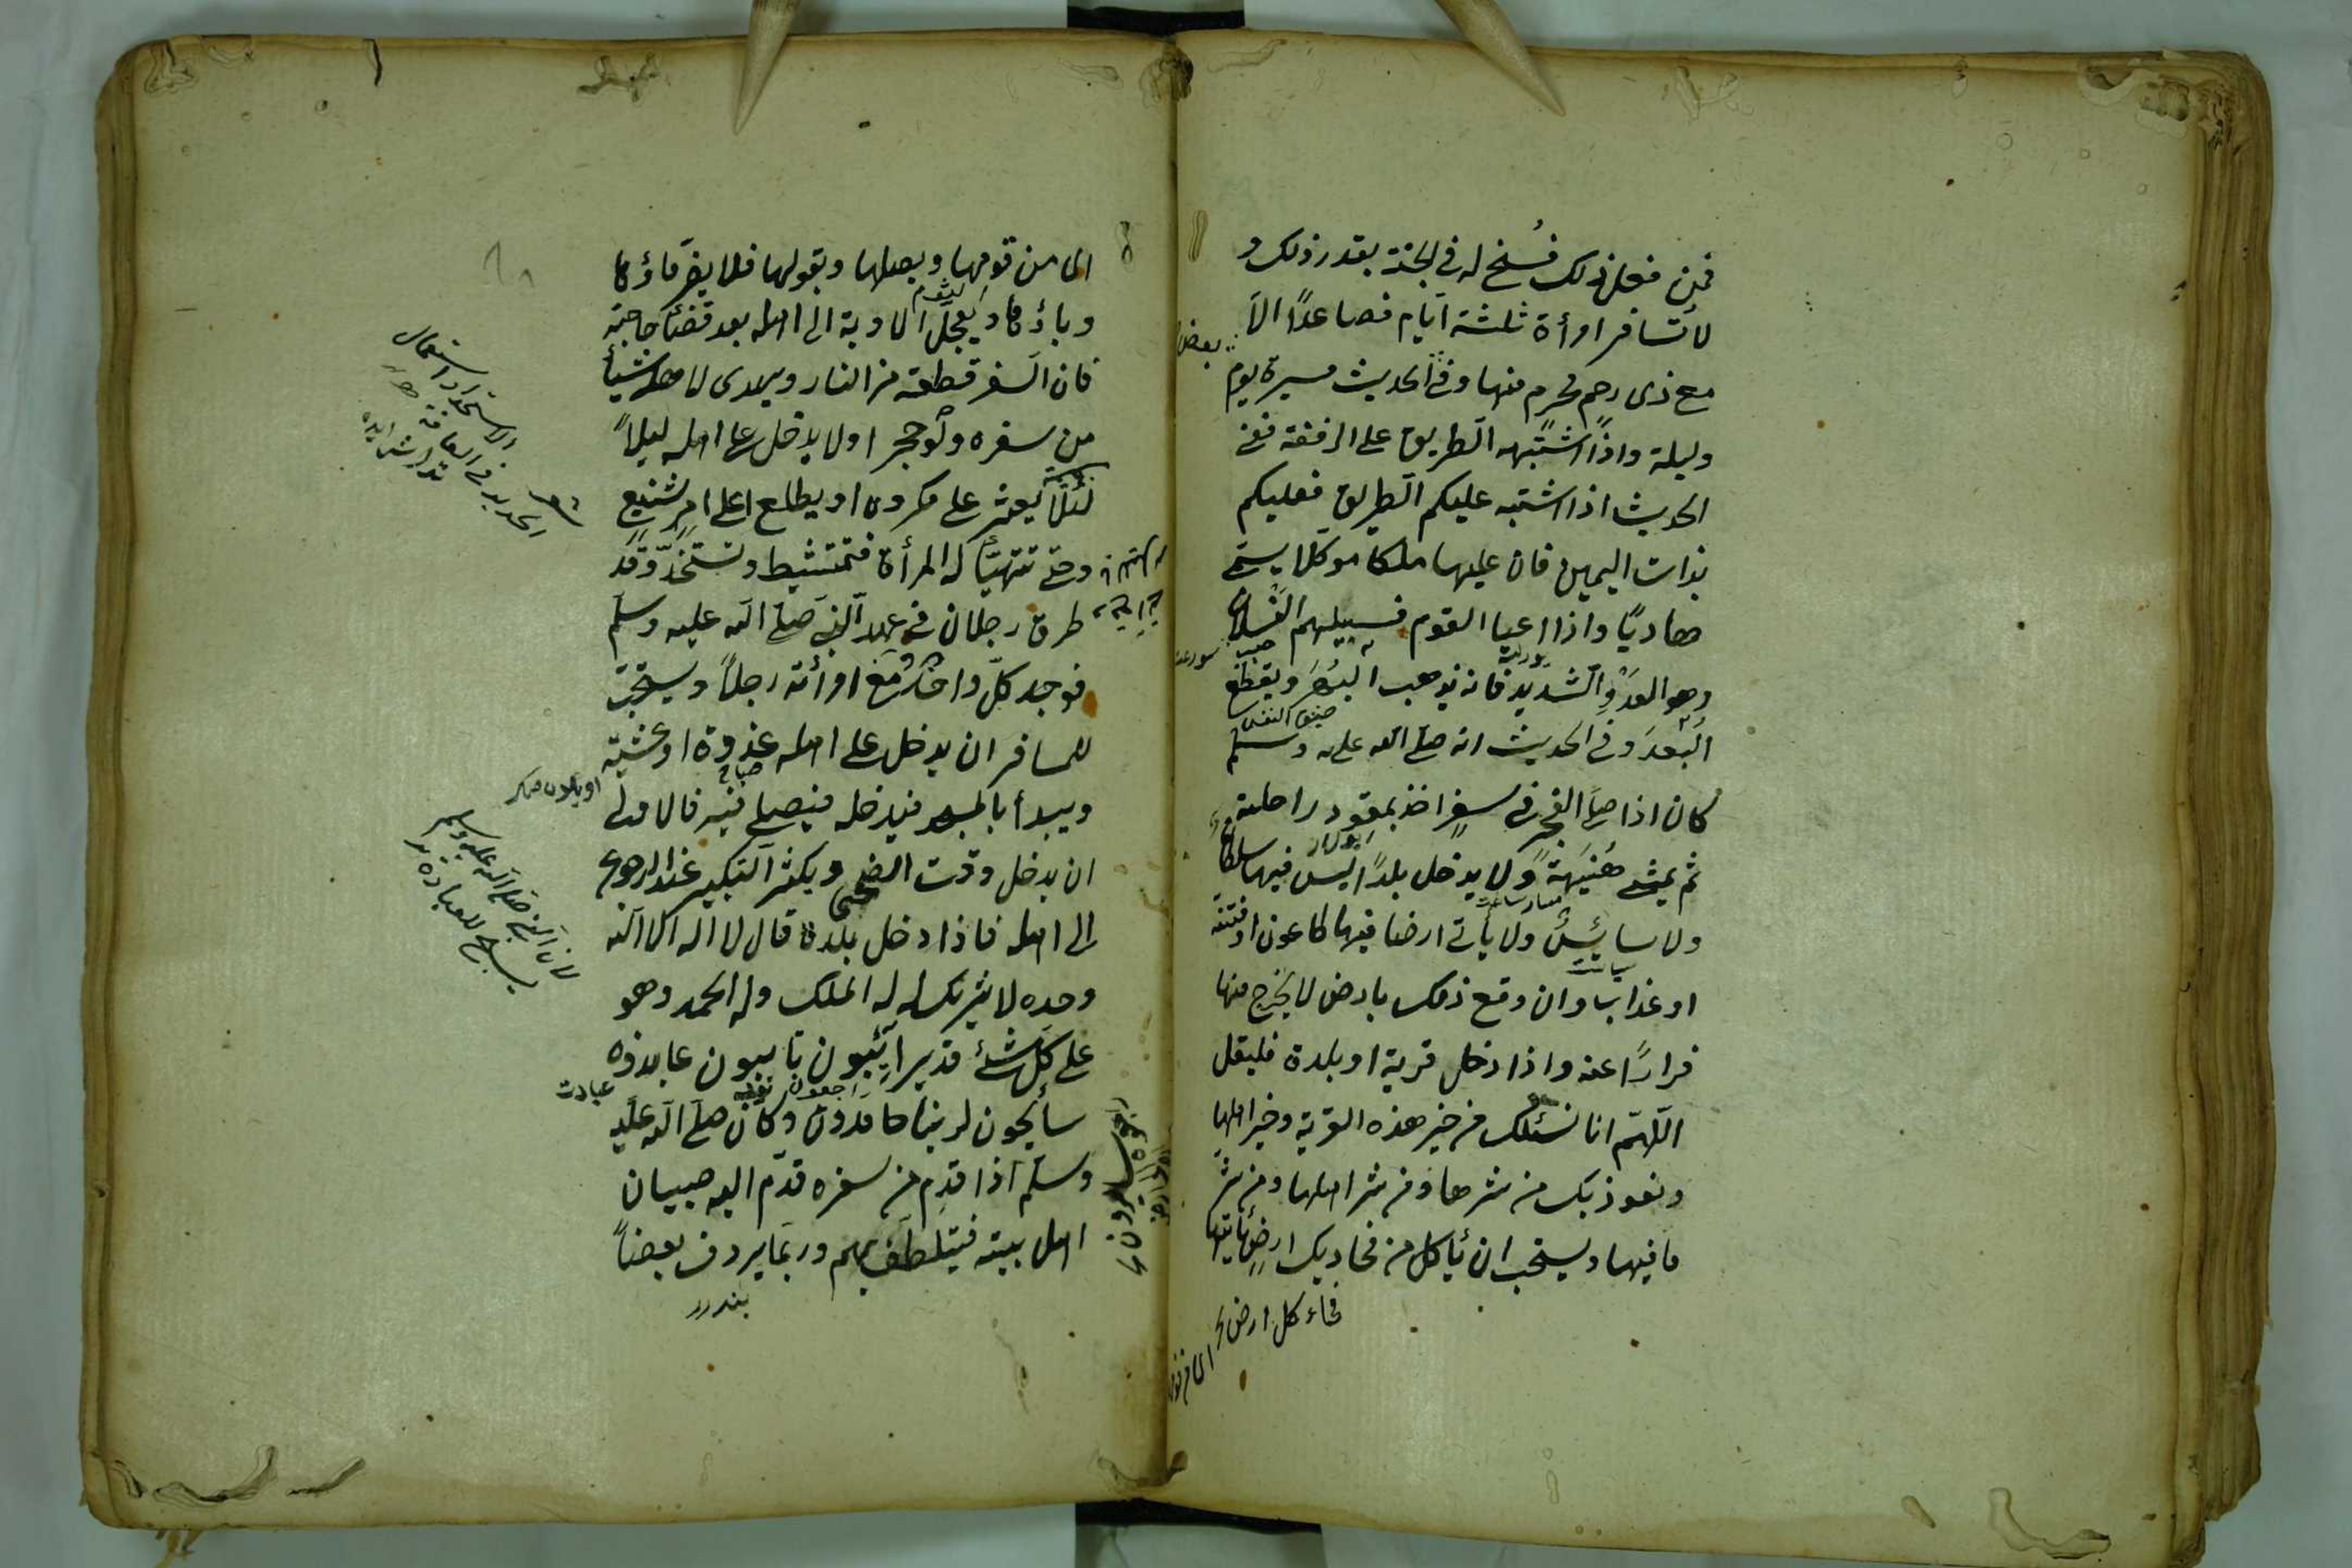 فمن فعل ذلك فسح له في الجنة بقدر ذلك و
لا تسافر امرأة ثلثة ايام فصاعدًا الا
مع ذى رحم محرم منها وفي الحديث مسيرة يوم
وليلة واذا اشتبه الطريق على الرفقة ففى
الحديث اذا اشتبه عليكم الطريق فعليكم
بذات اليمين فان عليها ملكا موكلا يسمى
هاديًا واذا اعيا القوم فسبيلهم النسلان
وهو العدو الشديد فانه يذهب البهر ويقطع
البعد وفي الحديث انه صلى الله عليه وسلم
كان اذا صلى الفجر في سفر اخذ بمقود راحلته
ثم يمشى هنيهة ولا يدخل بلدًا ليس فيها سلطان
ولا سايس ولا يأتى ارضا فيها طاعون او فتنة
او عذاب وان وقع ذلك بارض لا يخرج منها
فرارًا عنه واذا دخل قرية او بلدة فليقل
اللهم انا نسئلك من خير هذه القرية وخير اهلها
ونعوذ بك من شرها ومن شر اهلها ومن شر
ما فيها ويستحب ان يأكل من فحا ديك ارض يأتيها
بعض
ضيق النفس
فحاء كل ارض
اى من قومها وبصلها وبقولها فلا يضر ماؤها
وباؤها ويعجل الاوبة الى اهله بعد قضاء حاجته
فان السفر قطعة من النار ويهدى لاهله شيأ
من سفره ولو حجرا ولا يدخل على اهله ليلاً
لئلا يعثر على مكروه او يطلع على امر شنيع
وحتى تتهيأ له المرأة فتمتشط وتستحد وقد
طرق رجلان في عهد النبى صلى الله عليه وسلم
فوجد كل واحد مع امرأته رجلاً ويستحب
للمسافر ان يدخل على اهله غدوة او عشية
ويبدأ بالمسجد فيدخله فيصلى فيه فالاولى
ان يدخل وقت الضحى ويكثر التكبير عند الرجوع
الى اهله فاذا دخل بلده قال لا اله الا الله
وحده لا شريك له له الملك وله الحمد وهو
على كل شئ قدير ايئبون تايبون عابدون
سائحون لربنا حامدون وكان صلى الله عليه
وسلم اذا قدم من سفره قدم اليه صبيان
اهل بيته فيتلطف بهم وربما يردف بعضاً
الاستحداد استعمال
الحديد في العانة
صباح
لان النبى صلى الله عليه وسلم
عبادت